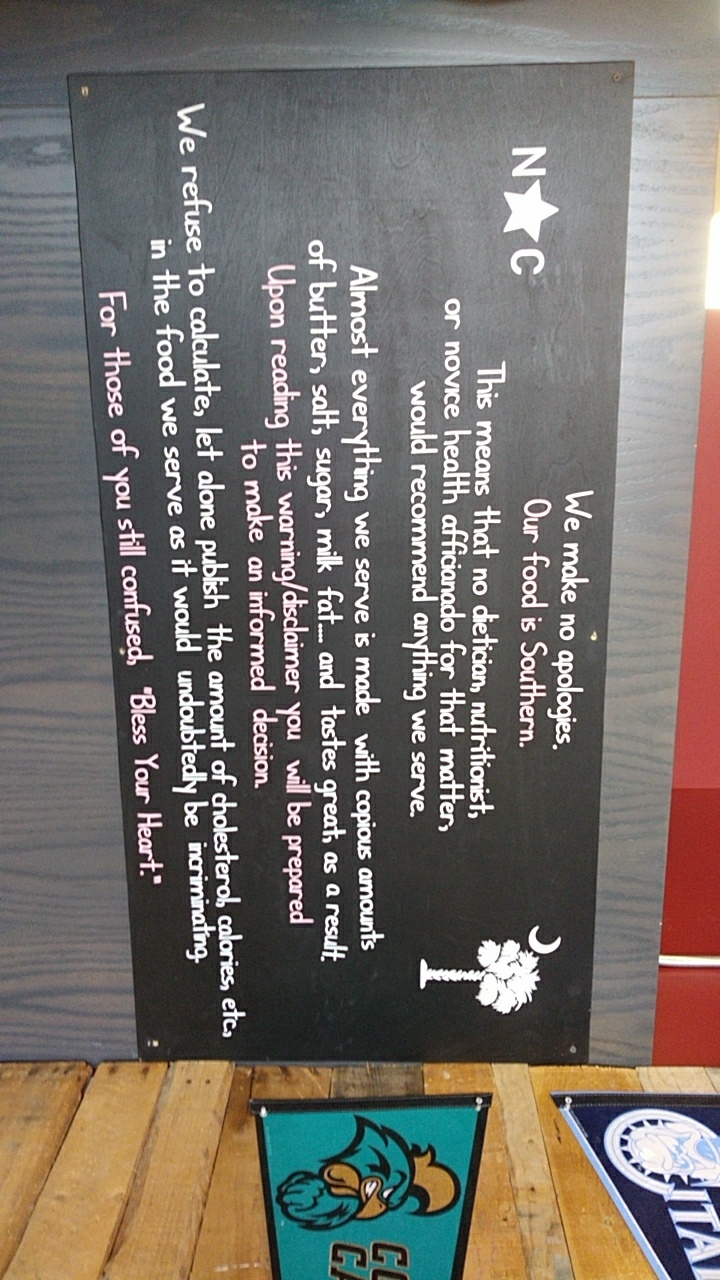 N★C
We make no apologies.
Our food is Southern.
This means that no dietician, nutritionist,
or novice health afficianado for that matter,
would recommend anything we serve.
Almost everything we serve is made with copious amounts
of butter, salt, sugar, milk fat.... and tastes great, as a result.
Upon reading this warning/disclaimer you will be prepared
to make an informed decision.
We refuse to calculate, let alone publish the amount of cholesterol, calories, etc,
in the food we serve as it would undoubtedly be incriminating.
For those of you still confused, "Bless Your Heart."